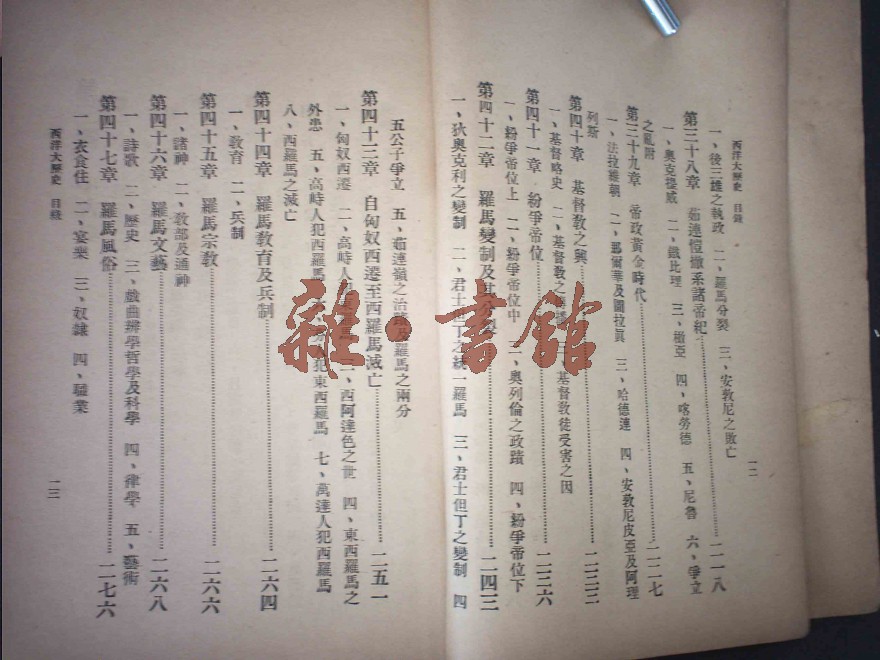 西洋大歷史 目錄 一二
一、後三雄之執政 二、羅馬分裂 三、安敦尼之敗亡
第三十八章 茹連愷撒系諸帝紀……二一八
一、奧克 威 二、鐵比理 三、橄亞 四、喀勞德 五、尼魯 六、爭立
之亂附
第三十九章 帝政黃金時代……二二七
一、法拉維朝 二、那爾華及圖拉真 三、哈德連 四、安敦尼皮亞及阿理
列斯
第四十章 基督教之興……二三二
一、基督略史 二、基督教之 三、基督教徒受害之因
第四十一章 紛爭帝位……二三六
一、紛爭帝位上 二、紛爭帝位中 三、奧列倫之政蹟 四、紛爭帝位下
第四十二章 羅馬變制及其分裂……二四三
一、狄奧克利之變制 二、君士但丁之統一羅馬 三、君士但丁之變制 四
五公子爭立 五、茹連嶺之治蹟及羅馬之兩分
第四十三章 自匈奴西遷至西羅馬滅亡……二五一
一、匈奴西遷 二、高峙人 三、西阿達色之世 四、東西羅馬之
外患 五、高峙人犯西羅馬 六、 人犯東西羅馬 七、萬達人犯西羅馬
八、西羅馬之滅亡
第四十四章 羅馬教育及兵制……二六四
一、教育 二、兵制
第四十五章 羅馬宗教……二六六
一、諸神 二、教部及通神
第四十六章 羅馬文藝……二六八
一、詩歌 二、歷史 三、戲曲辨學哲學及科學 四、律學 五、藝術
第四十七章 羅馬風俗……二七六
一、衣食住 二、宴樂 三、奴隸 四、職業
西洋大歷史 目錄 一三
雜·書館